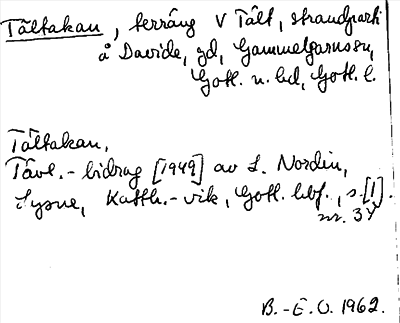 Tältakan, terräng V Tält, strandparti
å Davide, gd, Gammelgarns sn,
Gotl. n. hd, Gotl. l.
Tältakan,
Tävl.-bidrag [1949] av L. Nordin,
Lysne, Katth.-vik, Gotl. hbf., s. [1].
nr. 34
B.-E. O. 1962.